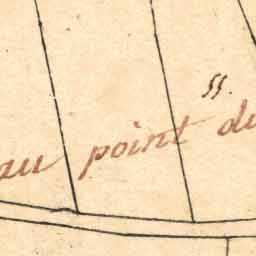 55.
au point du